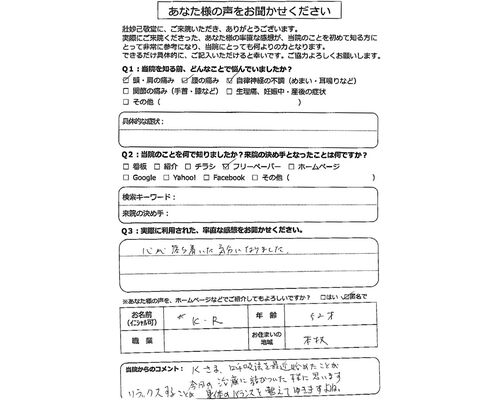 あなた様の声をお聞かせください
壮妙己敬堂に、ご来院いただき、ありがとうございます。
実際にご来院くださった、あなた様の率直な感想が、当院のことを初めて知る方に
とって非常に参考になり、当院にとっても何よりの力となります。
できるだけ具体的に、ご記入いただけると幸いです。ご協力よろしくお願いします。
Q1:当院を知る前、どんなことで悩んでいましたか?
☑ 頭・肩の痛み ☑ 腰の痛み ☑ 自律神経の不調(めまい・耳鳴りなど)
□ 関節の痛み(手首・膝など) □ 生理痛、妊娠中・産後の症状
□ その他( )
具体的な症状:
Q2:当院のことを何で知りましたか?来院の決め手となったことは何ですか?
□ 看板 □ 紹介 □ チラシ ☑ フリーペーパー □ ホームページ
□ Google □ Yahoo! □ Facebook □ その他( )
検索キーワード:
来院の決め手:
Q3:実際に利用された、率直な感想をお聞かせください。
心が落ち着いた気分になりました。
※あなた様の声を、ホームページなどでご紹介してもよろしいですか? □はい ☑匿名で
お名前(イニシャル可) K・R 年齢 52才
職業 お住まいの地域 本坂
当院からのコメント: Kさま、呼吸法を最近始めたことが
今回の治療に結びついた様に思います
リラックスすることが 身体のバランスを整えて